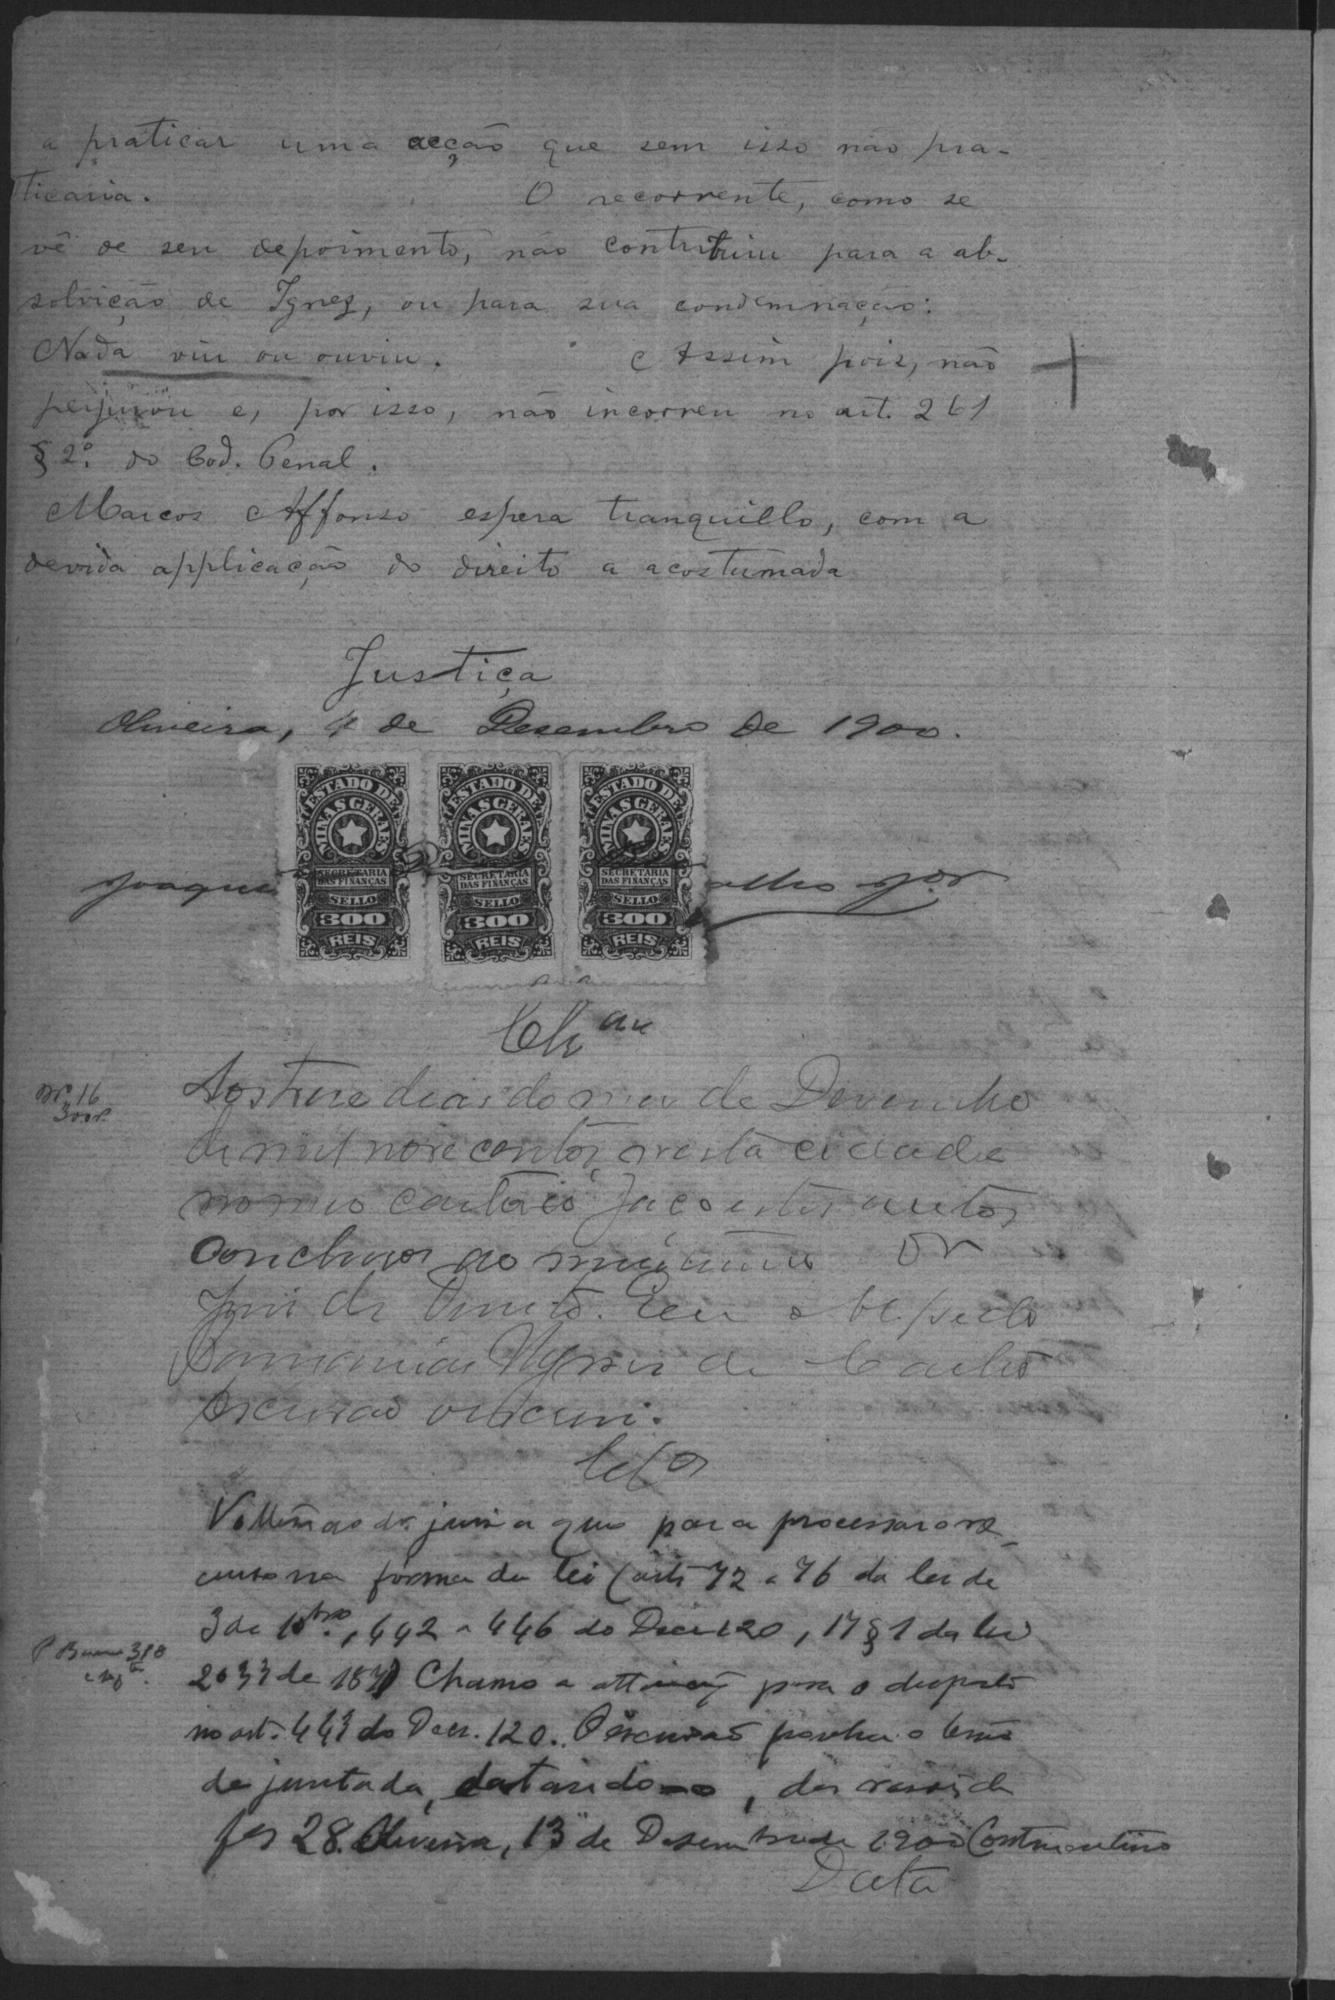 a praticar uma acção que sem isso não pra-
ticaria. O recorrente, como se
vê de seu depoimento, não contribuiu para a ab-
solvição de Ignez, ou para sua condemnação:
Nada viu ou ouviu. Assim pois, não
perjurou e, por isso, não incorreu no art. 261
§ 2º. do Cod. Penal.
Marcos Affonso espera tranquillo, com a
devida applicação do direito a acostumada
Justiça
Oliveira, 4 de Desembro de 1900.
ESTADO DE MINAS GERAES SECRETARIA DAS FINANÇAS SELLO 300 REIS
ESTADO DE MINAS GERAES SECRETARIA DAS FINANÇAS SELLO 300 REIS
ESTADO DE MINAS GERAES SECRETARIA DAS FINANÇAS SELLO 300 REIS
Joaquim alho Jor
Clsam
Nº 16
300r
Aos treze dias do mez de Dezembro
de mil nove centos, nesta cidade
no meo cartorio faço estes autos
conclusos ao Dr
Juiz de Direito. Eu
de Castro
Escrivão escrevi.
Clsos
Voltem ao dr. juiz a quo para processar o re-
curso na forma da lei (arts 72 a 76 da lei de
3 de 10bro, 442 a 446 do Decr 120, 17 § 1 da lei
2033 de 1871) Chamo a attenção para o disposto
no art. 443 do Decr. 120. O escrivão ponha o termo
de juntada, datando-o, das razões de
fls 28. Oliveira, 13 de Desembro de 1900
P Bueno 310
Data